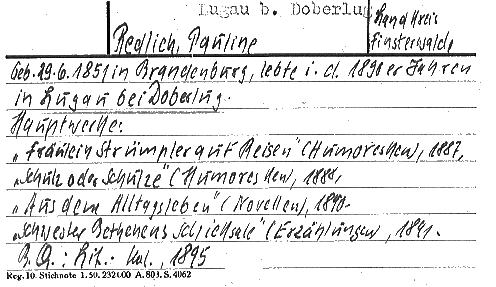 Lugau b. Doberlug
Landkreis
Finsterwalde
Redlich, Pauline
Geb. 29.6.1851 in Brandenburg, lebte i. d. 1890er Jahren
in Lugau bei Doberlug.
Hauptwerke:
„Fräulein Strümpler auf Reisen" (Humoresken), 1887,
„Schulz oder Schulze" (Humoresken), 1888,
„Aus dem Alltagsleben" (Novellen), 1890.
„Schwester Bethchens Schicksale" (Erzählungen), 1891.
B. Q.: Lit. Kal., 1895
Reg. 10. Stichnote 1. 50. 232400 A. 803. S. 4062